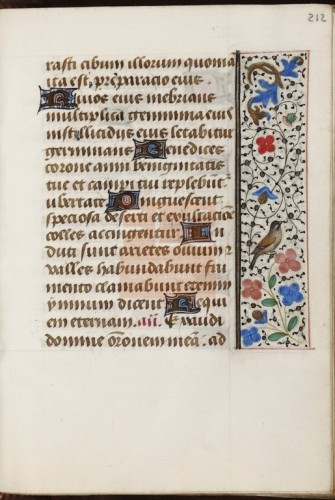 212
rasti cibum illorum quonia
ita est preparacio eius.
Riuos eius inebrians
multiplica gemimina eius
in stillicidiis eius letabitur
germinans Benedices
corone anni benignitatis
tue et campi tui replebunt
ubertate Pinguescent
speciosa deserti et exultacione
colles accingentur In
duti sunt arietes ouium et
valles habundabunt fru
mento clamabunt etenim
ymnum dicent Requi
em eternam. añ. Exaudi
domine oronem meã. ad